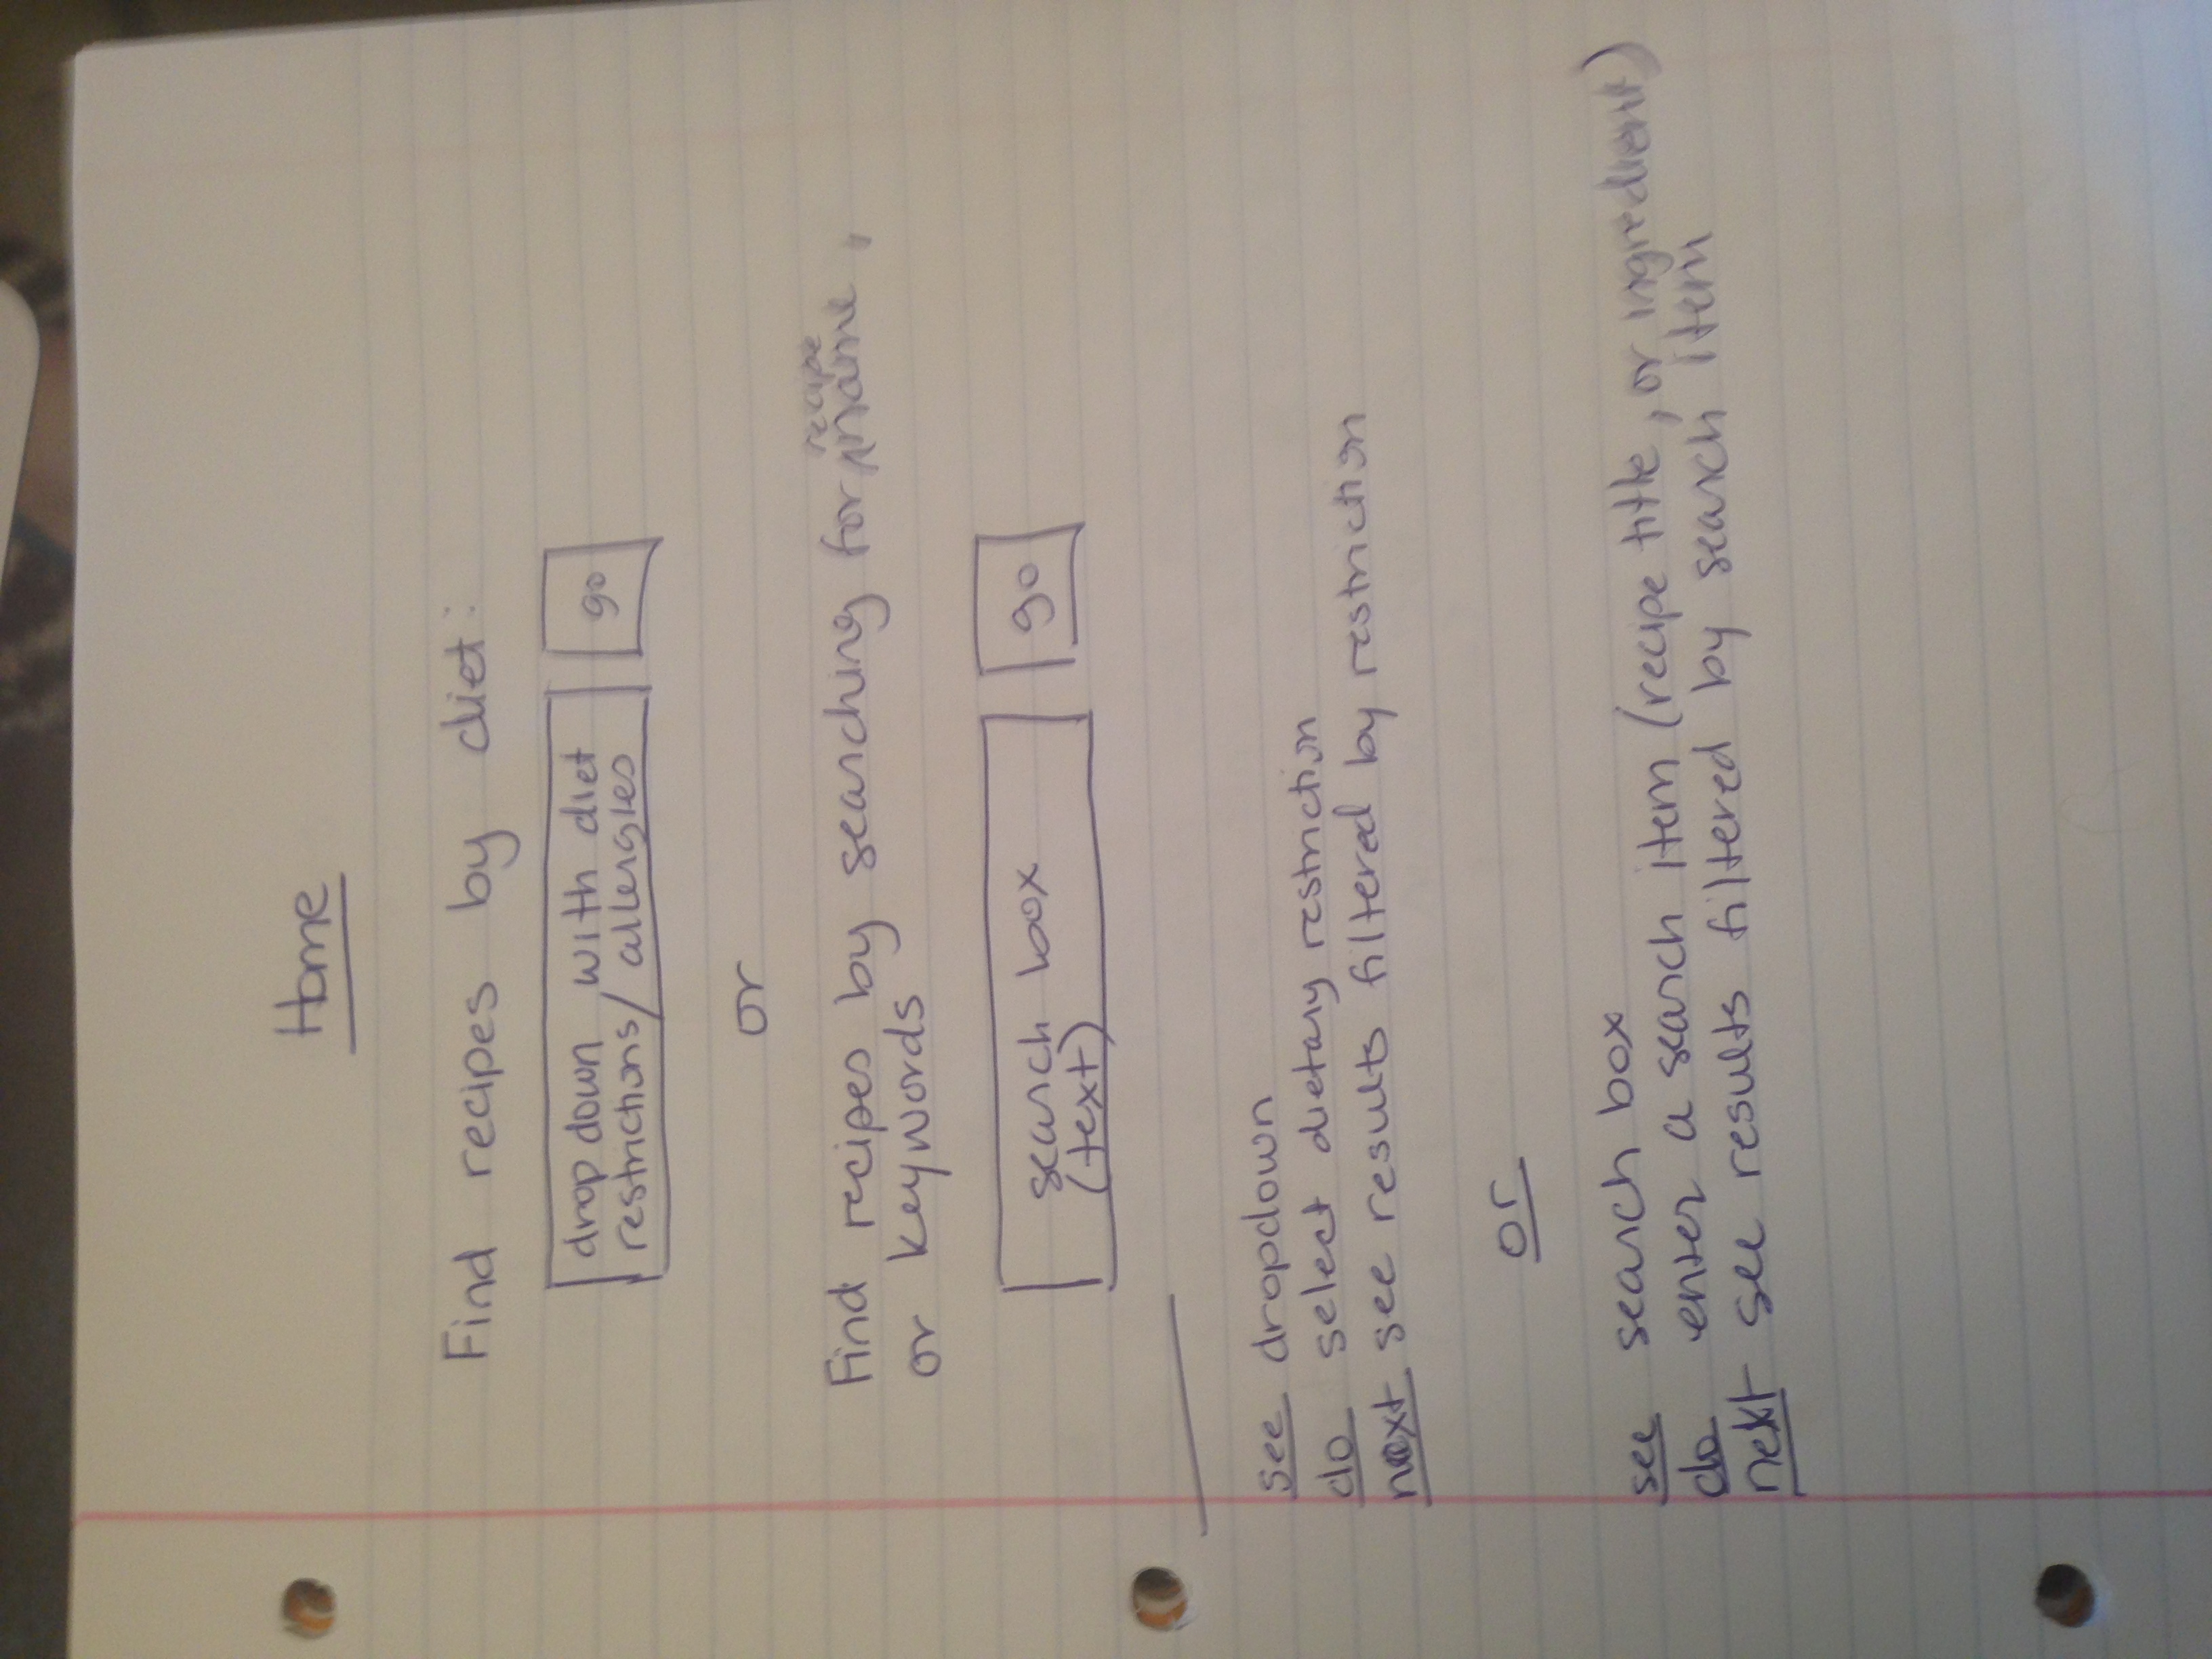 Home
Find recipes by diet:
drop down with diet
restrictions/allergies
go
or
Find recipes by searching for recipe name,
or keywords
search box
(text)
go
see dropdown
do select dietary restriction
next see results filtered by restriction
or
see search box
do enter a search item (recipe title, or ingredient)
next see results filtered by search item